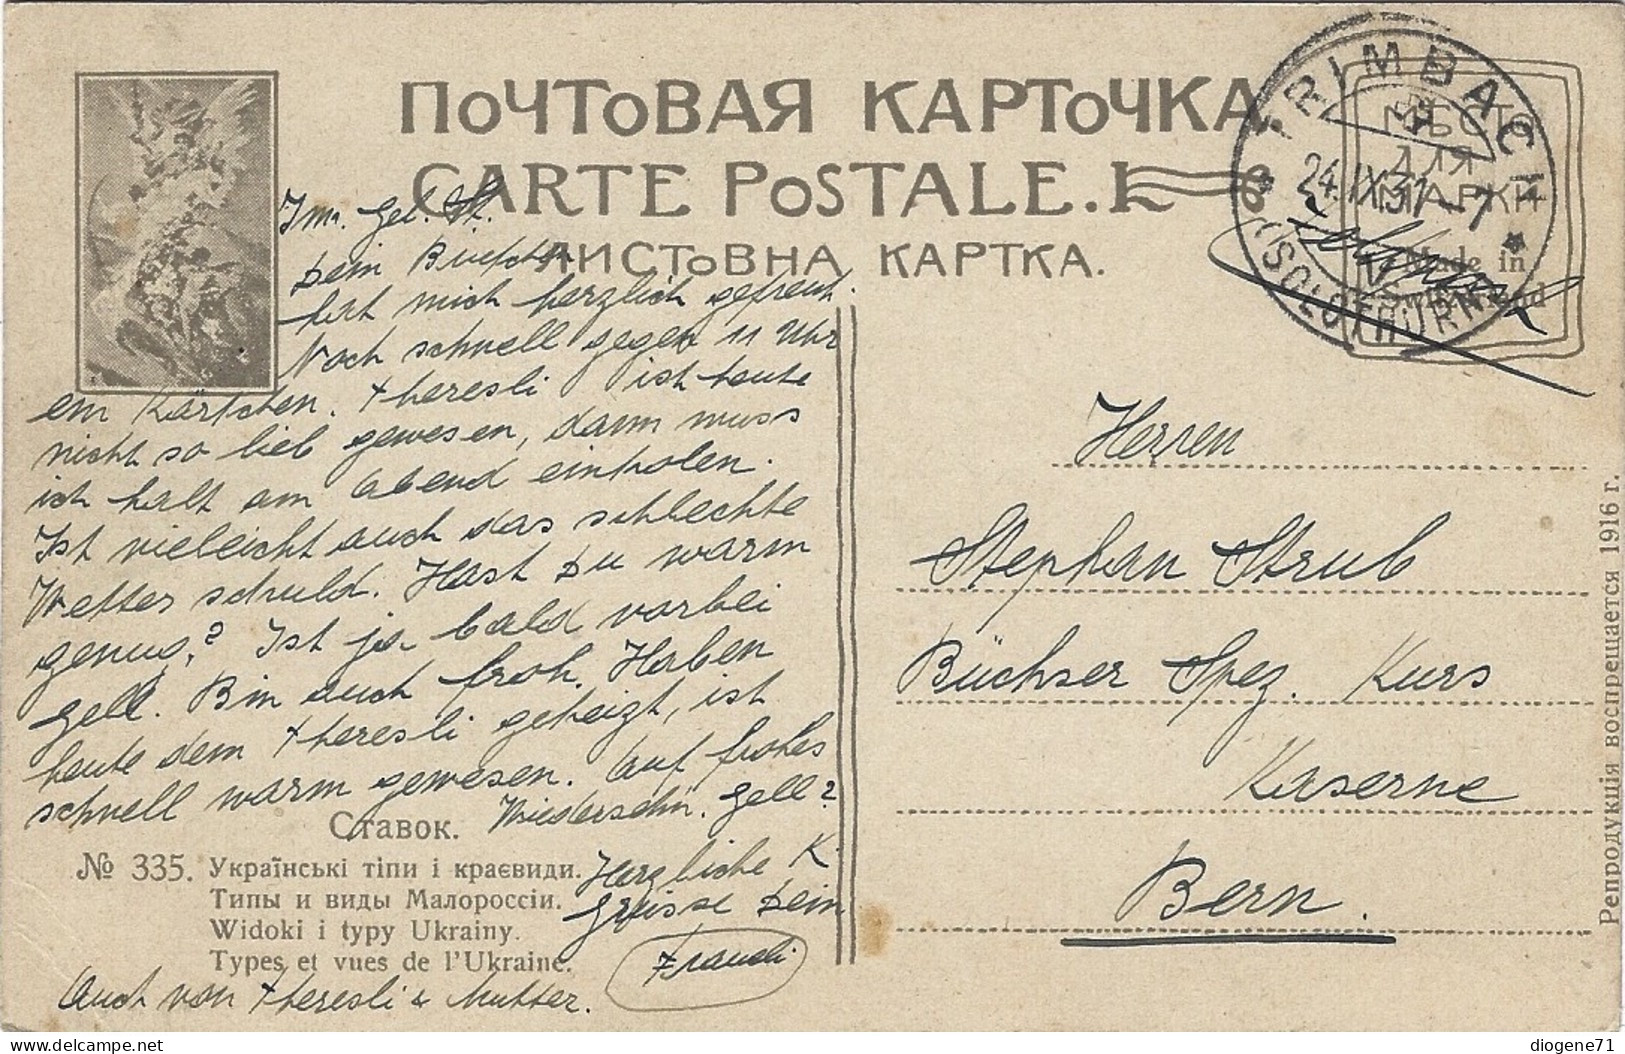 ПОЧТОВАЯ КАРТОЧКА
CARTE POSTALE.
ЛИСТОВНА КАРТКА.
TRIMBACH
24.IX.31-7
(SOLOTHURN)
МѢСТО
ДЛЯ
МАРКИ
Made in
Switzerland
Im gel. St.
Dein Briefchen
hat mich herzlich gefreut.
Noch schnell gegen 11 Uhr
ein Kärtchen. Theresli ist heute
nicht so lieb gewesen, dann muss
ich halt am Abend einholen.
Ist vieleicht auch das schlechte
Wetter schuld. Hast Du warm
genug? Ist ja bald vorbei
gell. Bin auch froh. Haben
heute dem Theresli geheizt, ist
schnell warm gewesen. Auf frohes
Wiedersehn. gell?
Herzliche K.
Grüsse Dein
Fraueli
Auch von Theresli & Mutter.
Ставок.
№ 335. Українські тіпи і краєвиди.
Типы и виды Малороссіи.
Widoki i typy Ukrainy.
Types et vues de l'Ukraine.
Herren
Stephan Strub
Büchser Spez. Kurs
Kaserne
Bern.
Репродукція воспрещается 1916 г.
diogene71